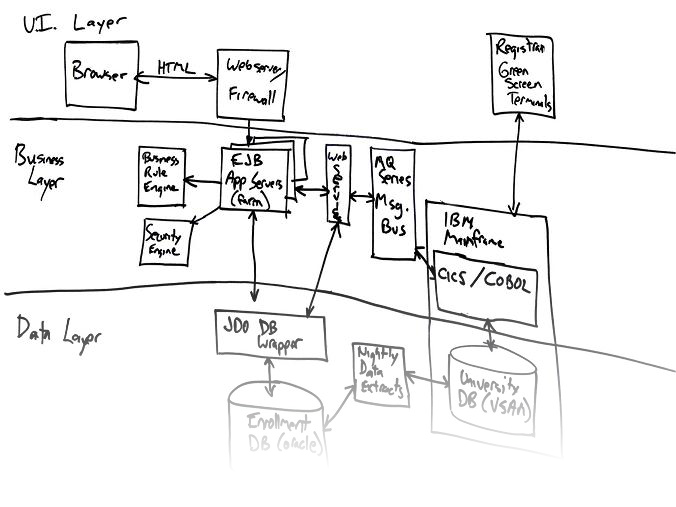 UI. Layer
Browser
HTML
Webserver/
Firewall
Registrar
Green
Screen
Terminals
Business
Layer
Business
Rule
Engine
EJB
App Servers
(farm)
Web
Services
MQ
Series
Msg.
Bus
IBM
Mainframe
CICS/COBOL
Security
Engine
Data Layer
JDO DB
Wrapper
Nightly
Data
Extracts
University
DB (VSAM)
Enrollment
DB (oracle)